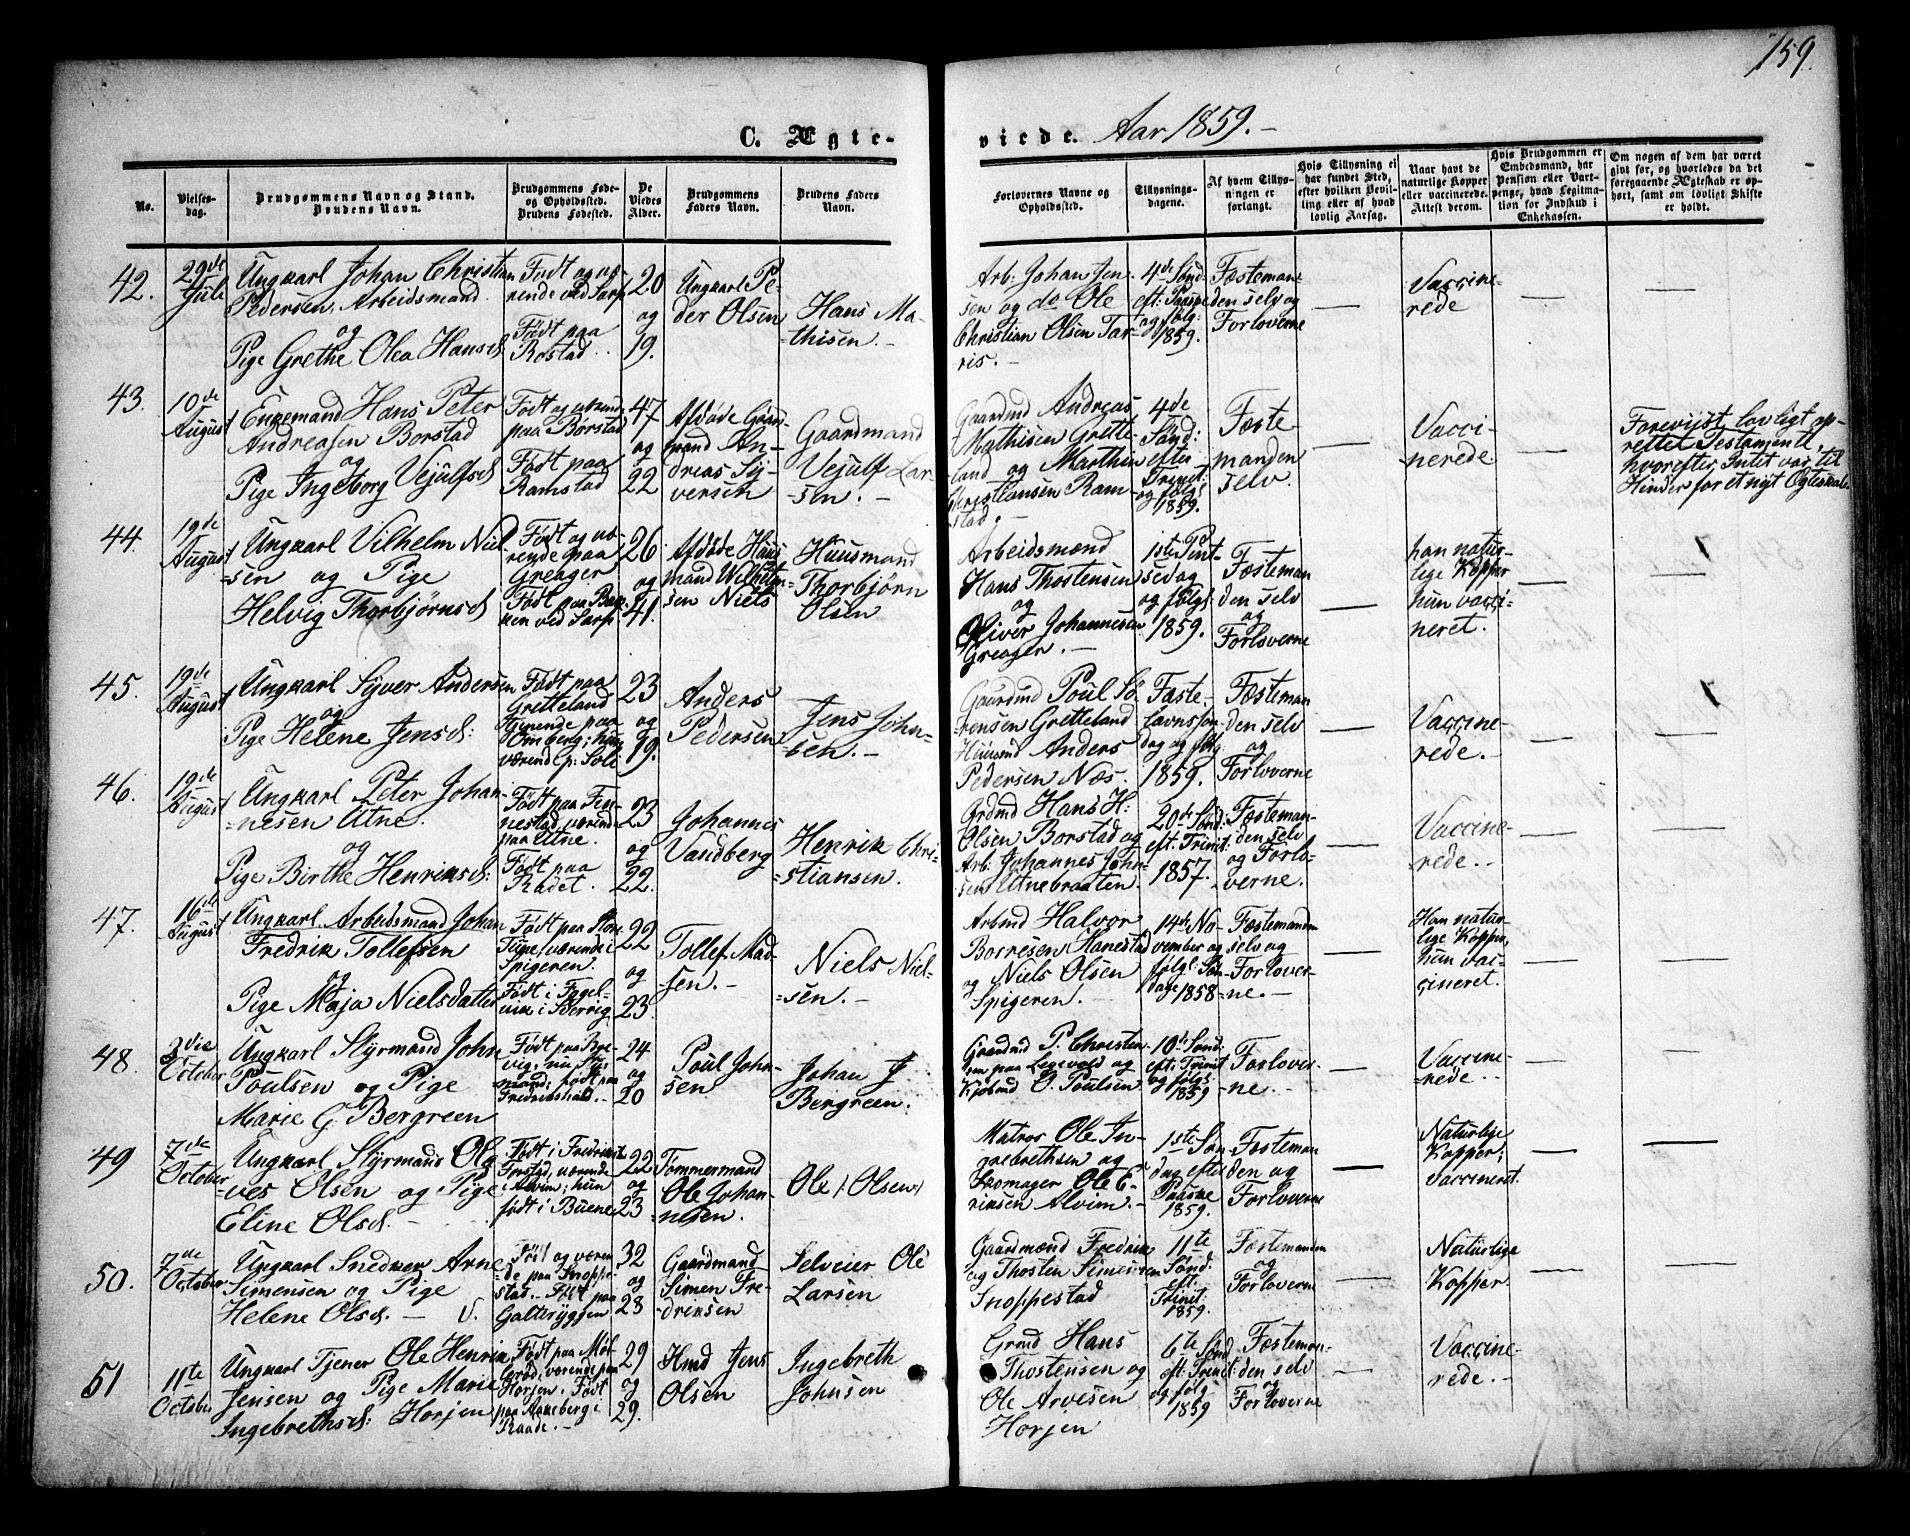 159.
C. Ægte-
viede. Aar 1859.-
No.
Vielses-
dag.
Brudgommens Navn og Stand.
Brudens Navn.
Brudgommens Føde-
og Opholdssted.
Brudens Fødested.
De
Viedes
Alder.
Brudgommens
Faders Navn.
Brudens Faders
Navn.
Forlovernes Navne og
Opholdssted.
Tillysnings-
dagene.
Af hvem Tillys-
ningen er
forlangt.
Hvis Tillysning ei
har fundet Sted,
efter hvilken Bevil-
ling eller af hvad
lovlig Aarsag.
Naar havt de
naturlige Kopper
eller vaccinerede.
Attest derom.
Hvis Brudgommen er
Embedsmand, har
Pension eller Vart-
penge, hvad Legitima-
tion for Indskud i
Enkekassen.
Om nogen af dem har været
gift før, og hvorledes da det
foregaaende Ægteskab er op-
hørt, samt om lovligt Skifte
er holdt.
42.
29de
Juli
Ungkarl Johan Christian
Pedersen, Arbeidsmand
og
Pige Grethe Olea Hansd.
Født og væ-
rende ved Sarp
Født paa
Rostad.
20
og
19.
Ungkarl Pe-
der Olsen
Hans Ma-
thisen.-
Arb. Johan Jen-
sen og do Ole
Christian Olsen Tar-
ris.-
4de Sønd:
eft: Paaske
og følg:
1859.
Fæsteman-
den selv og
Forloverne
Vaccine-
rede
43.
10de
August
Enkemand Hans Peter
Andreasen Borstad
og
Pige Ingeborg Vejulfsd.
Født og værend.
paa Borstad
Født paa
Ramstad
47
og
22
Afdøde Gaar-
mand An-
dreas Sy-
versen
Gaardmand
Vejulf Lar-
sen.-
Gaardmd Andreas
Mathisen Grette-
land og Marthin
Christiansen Ram-
stad.-
4de
Sønd:
efter
Trinit:
og følg:
1859.
Fæste
manden
selv.
Vacci-
nerede
Foreviist lovligt op-
rettet Testamente,
hvorefter Intet var til
Hinder for et nyt Ægteskab.
44.
19de
August
Ungkarl Vilhelm Niel-
sen og Pige
Helvig Thorbjørnsd.
Født og væ-
rende paa
Greager
Født paa Bak-
ken ved Sarp.
26
og
41.
Afdøde Huus-
mand Wilhelm-
sen Niels
Huusmand
Thorbjørn
Olsen
Arbeidsmænd
Hans Thostensen
og
Oliver Johannesen
Greager.-
1ste Pd
Pint-
sedag
og følg:
1859.
Fæsteman
den selv
og
Forloverne
han natur-
lige Kopper
hun vacci-
neret.
45.
19de
August
Ungkarl Syver Andersen
og
Pige Helene Jensd:
Født paa
Gretteland
tjenende paa
Omberg; hun
værend. p: Sole.
23
og
19.
Anders
Pedersen
Jens John-
sen.-
Gaardmd Poul Sø-
rensen Gretteland
Huusmd Anders
Pedersen Næs.
Faste-
lavnssøn-
dag og følg:
1859.
Fæsteman-
den selv
og
Forloverne
Vaccine-
rede.-
46.
19de
August
Ungkarl Peter Johan-
nesen Utne.
og
Pige Birthe Henriksd:
Født paa Fin-
nestad, værende
paa Utne.
Født paa
Radet.
23
og
22.
Johannes
Vandberg
Henrik Chri-
stiansen.
Grdmd Hans H:
Olsen Borstad og
Arb. Johannes John-
sen Utnebraaten.
20de Sønd:
eft. Trinit:
1857.
Fæsteman-
den selv
og Forlo-
verne.
Vaccine-
rede.-
47.
16de
August
Ungkarl Arbeidsmand Johan
Fredrik Tollefsen
og
Pige Maja Nielsdatter
Født paa Store
Tune, værende i
Spigeren.
Født i Fugel-
vik i Berrig
22
og
23
Tollef Mad-
sen.-
Niels Niel-
sen.-
Arbmd Halvor
Borresen Hanestad
og Niels Olsen
Spigeren.-
14de No-
vember og
følg: Søn-
dage 1858
Fæstemanden
selv og
Forlover-
ne.-
Han natur-
lige Kopper,
hun vac-
cineret.
48.
3die
October
Ungkarl Styrmand John
Poulsen og Pige
Marie G. Bergreen
24
og
20
Poul John-
sen
Johan J
Bergreen.
Gaardmd P. Christen-
sen paa Legevold og
Kjøbmd O. Poulsen
10de Sønd:
eft: Trinit
og følg:
1859
Forlover-
ne.-
Vaccine-
rede.-
49
7de
October
Ungkarl Styrmand Ole
ves Olsen og Pige
Eline Olsd.-
Født i Fredrik-
stad, værende
i Alvim; hun
født i Buene
22
og
23
Tømmermand
Ole Johan-
nesen.
Ole (Olsen)
Matros Ole In-
gebrethsen og
Skomager Ole E-
riksen Alvim.-
1ste Søn-
dag efter
Paaske
1859.
Fæsteman
den og
Forloverne
Naturlige
Kopper;
vaccineret.
50.
7de
October
Ungkarl Snedker Arne
Simensen og Pige
Helene Olsd.-
Født og væren
de paa Snoppe-
stad.- Født paa
Galteryggen
32
og
28
Gaardmand
Simen Fre-
driksen
Selveier Ole
Larsen
Gaardmænd Fredrik
og Thosten Simensen
Snoppestad
11te
Sønd:
eft.
Trinit:
1859.
Fæstemanden
og
Forloverne
Naturlige
Kopper
51
11te
October
Ungkarl Tjener Ole Henrik
Jensen og Pige Marie
Ingebrethsd: Horjen
Horjen; Født
paa Aakeberg i
Raade.-
29
og
29.
Hmd Jens
Olsen
Ingebreth
Johnsen
Grmd Hans
Thostensen og
Ole Arvesen
Horjen
6te Sønd
eft: Trinit:
og følg
1859
Fæsteman-
den selv
og
Forloverne
Vaccine-
rede.-